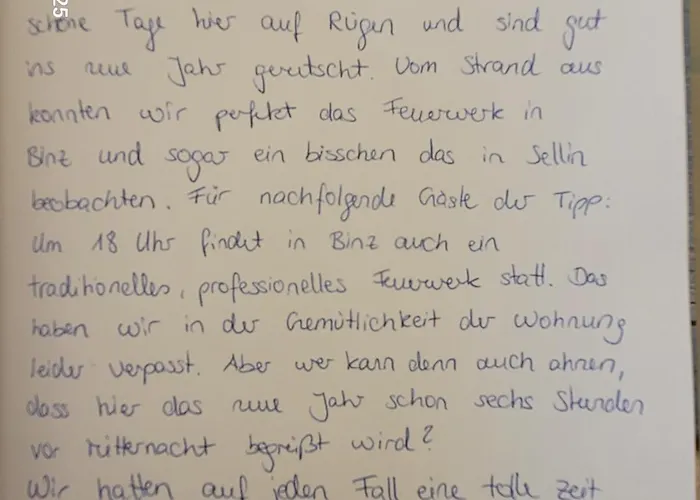 25
schöne Tage hier auf Rügen und sind gut
ins neue Jahr gerutscht. Vom Strand aus
konnten wir perfekt das Feuerwerk in
Binz und sogar ein bisschen das in Sellin
beobachten. Für nachfolgende Gäste der Tipp:
Um 18 Uhr findet in Binz auch ein
traditionelles, professionelles Feuerwerk statt. Das
haben wir in der Gemütlichkeit der Wohnung
leider verpasst. Aber wer kann denn auch ahnen,
dass hier das neue Jahr schon sechs Stunden
vor Mitternacht begrüßt wird?
Wir hatten auf jeden Fall eine tolle Zeit